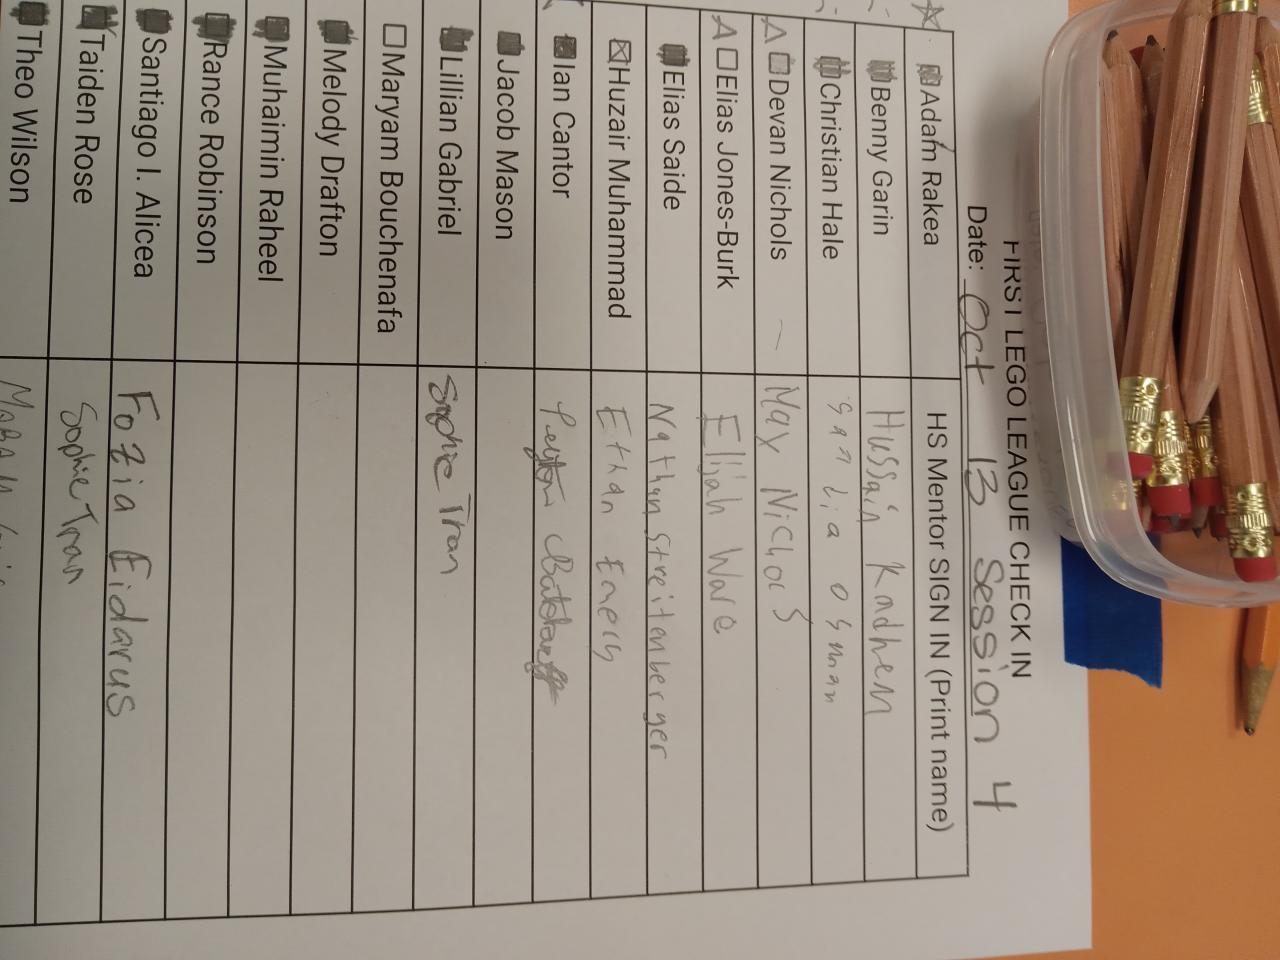 FIRST LEGO LEAGUE CHECK IN
Date: Oct 13 Session 4
Adam Rakea HS Mentor SIGN IN (Print name)
Benny Garin Hussain Kadhem
Christian Hale osman
A Devan Nichols Max Nichols
A Elias Jones-Burk Elijah Ware
Elias Saide Nathan Streitenberger
Huzair Muhammad Ethan Emery
Ian Cantor Peyton
Jacob Mason
Lillian Gabriel Sophie Tran
Maryam Bouchenafa
Melody Drafton
Muhaimin Raheel
Rance Robinson
Santiago I. Alicea Fozia Eidarus
Taiden Rose Sophie Tran
Theo Wilson